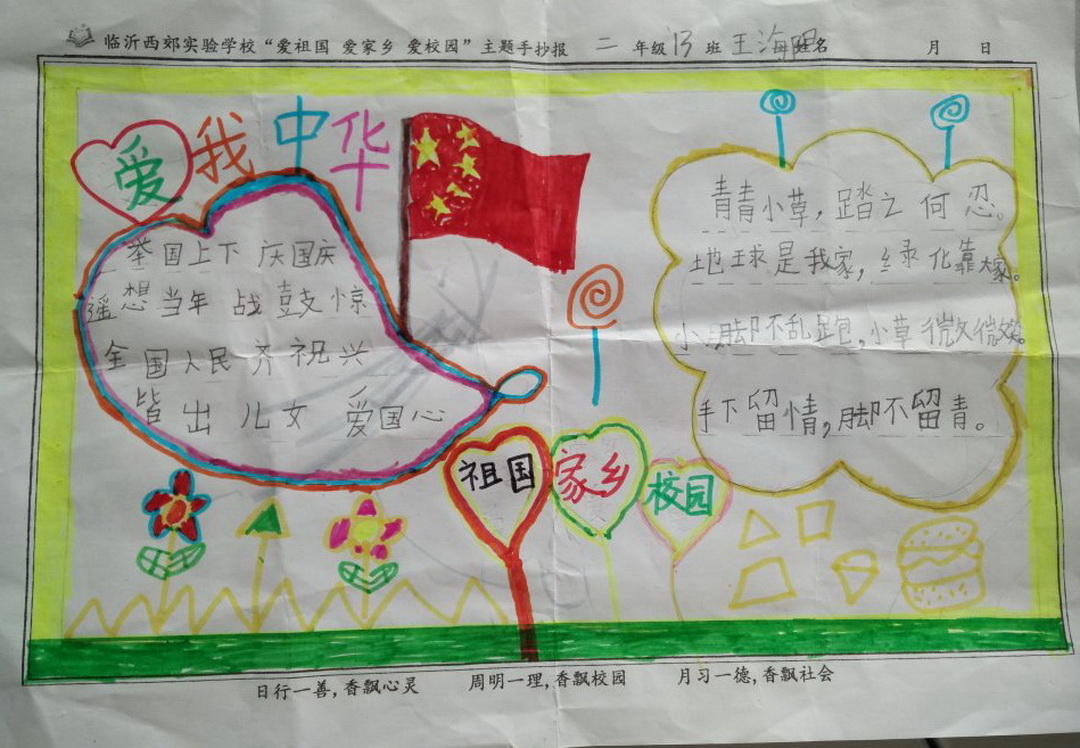 临沂西郊实验学校“爱祖国 爱家乡 爱校园”主题手抄报 二 年级 13 班 王海阳 姓名 月 日
爱我中华
举国上下 庆国庆
遥想当年 战鼓惊
全国人民 齐祝兴
皆出儿女 爱国心
青青小草，踏之何忍。
地球是我家，绿化靠大家。
小脚不乱跑，小草微微笑。
手下留情，脚不留青。
祖国 家乡 校园
日行一善，香飘心灵 周明一理，香飘校园 月习一德，香飘社会